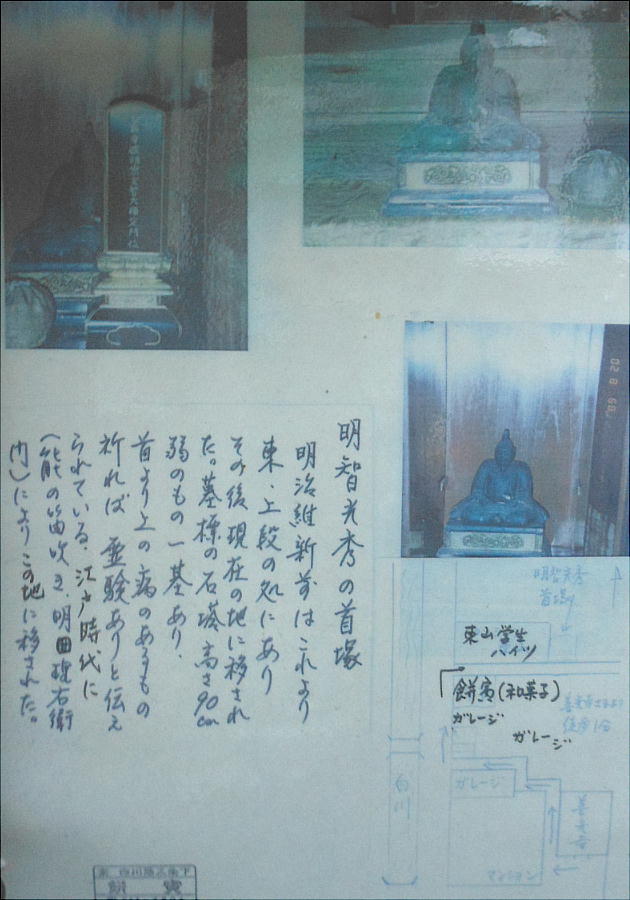 明智光秀の首塚
明治維新前はこれより
東、上段の処にあり
その後現在の地に移され
た。墓標の石塔、高さ90cm
弱のもの一基あり、
首より上の病のあるもの
祈れば霊験ありと伝え
られている、江戸時代に
(能の笛吹き、明田理右衛
門)によりこの地に移された。
明智光秀
首塚
東山学生
ハイツ
餅寅(和菓子)
ガレージ
ガレージ
徒歩1分
白川
ガレージ
マンション
餅寅